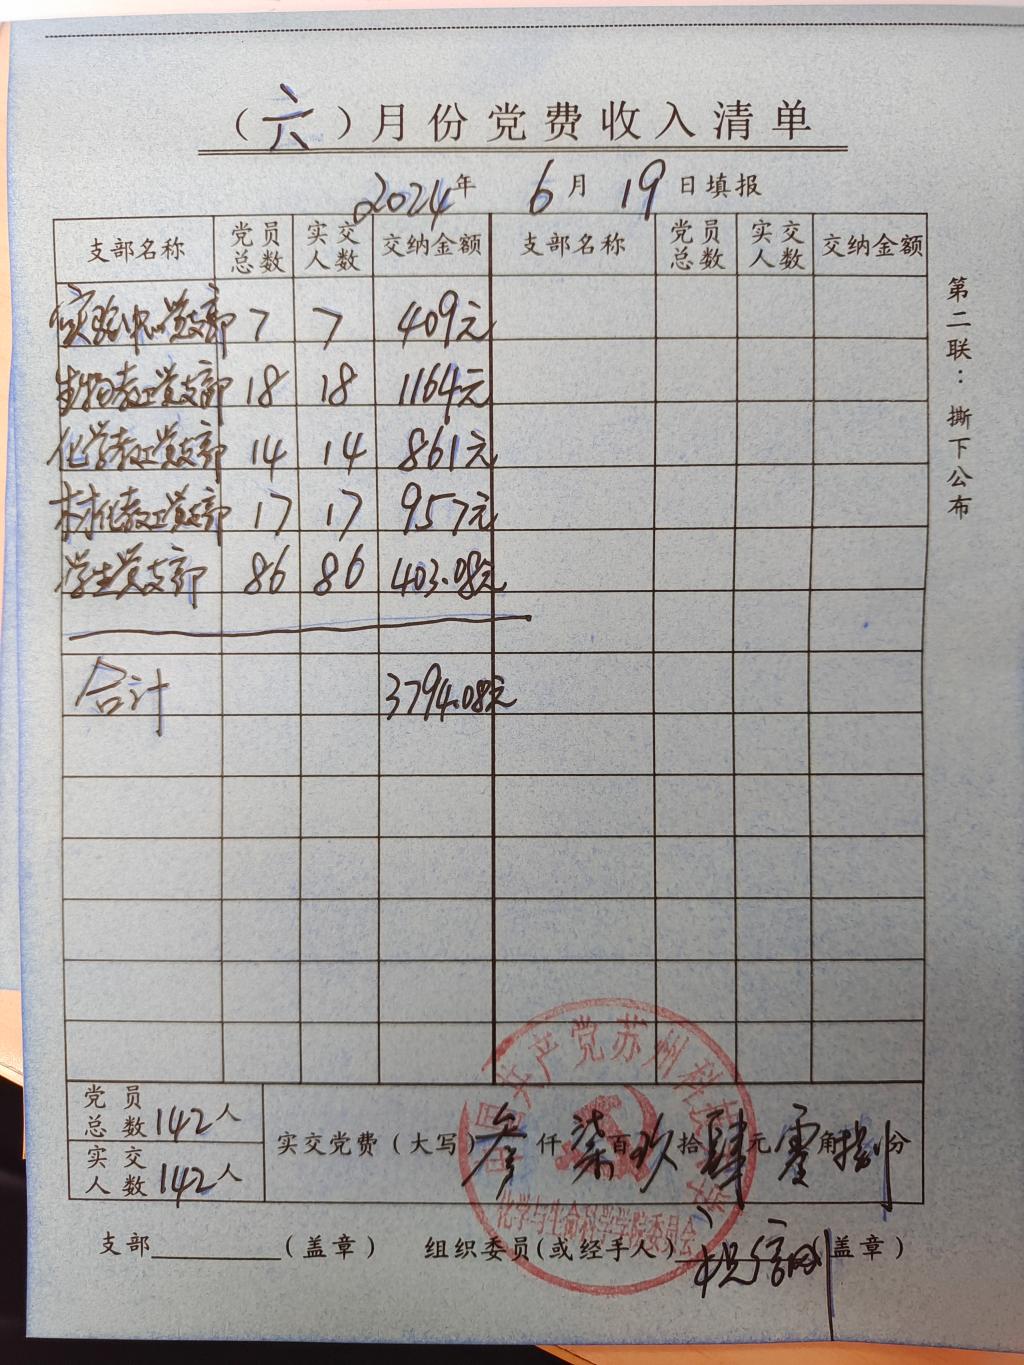 （六）月份党费收入清单
2024年 6月 19日填报
支部名称 党员总数 实交人数 交纳金额 支部名称 党员总数 实交人数 交纳金额
实验中心党支部 7 7 409元
生物教工党支部 18 18 1164元
化学教工党支部 14 14 861元
材化教工党支部 17 17 957元
学生党支部 86 86 403.08元
合计 3794.08元
党员总数 142人
实交人数 142人
实交党费（大写）叁仟柒百玖拾肆元零角捌分
支部（盖章） 组织委员(或经手人)（盖章）
第二联：撕下公布
中国共产党苏州科技大学
化学与生命科学学院委员会